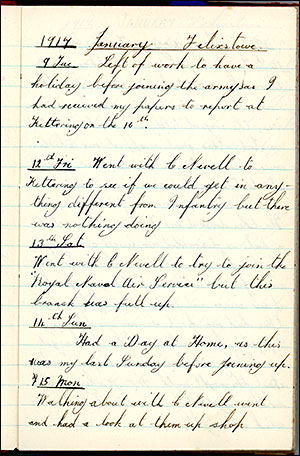 1917 January Felixstowe.
9 Tue Left of work to have a
holiday before joining the army, as I
had received my papers to report at
Kettering on the 16th.
12th Fri Went with C Newell to
Kettering to see if we could get in any-
thing different from Infantry but there
was nothing doing
13th Sat
Went with C Newell to try to join the
"Royal Naval Air Service" but this
branch was full up.
14th Sun
Had a Day at Home, as this
was my last Sunday before joining up.
15 Mon
Walking about with C Newell went
and had a look at them up shop